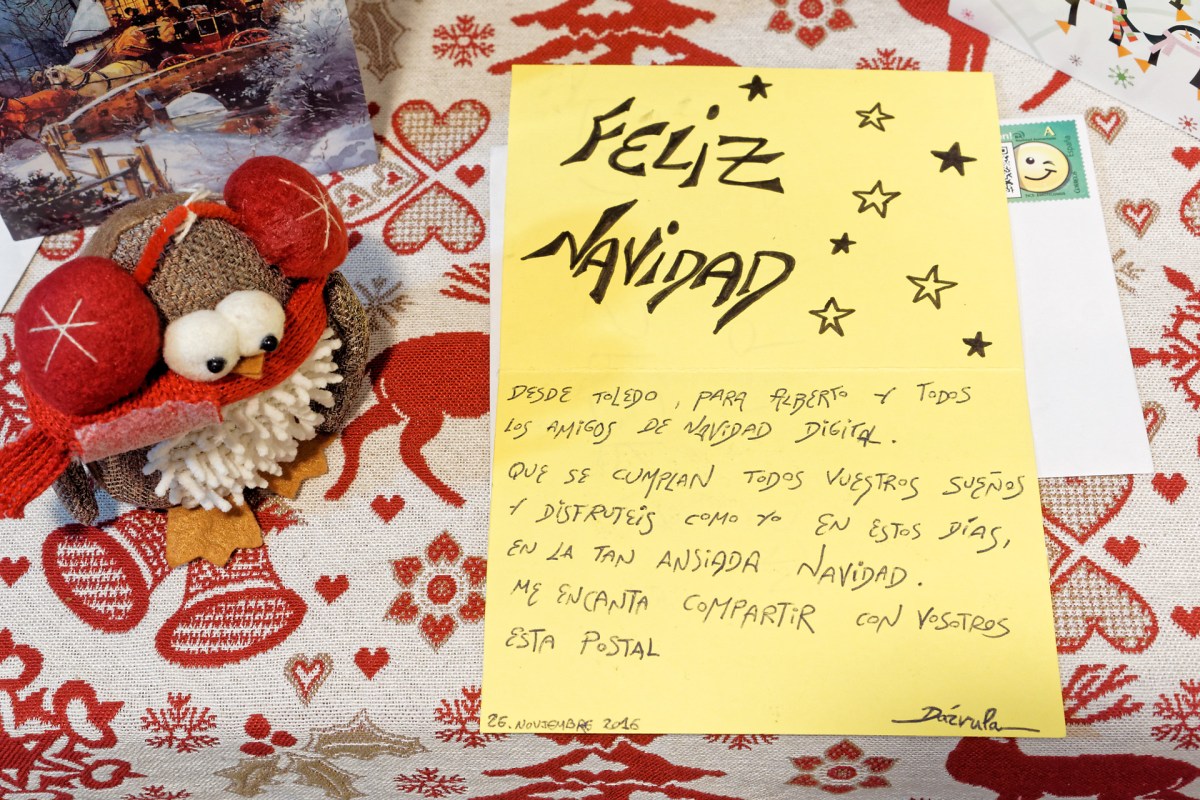 FELIZ
NAVIDAD
DESDE TOLEDO, PARA ALBERTO Y TODOS
LOS AMIGOS DE NAVIDAD DIGITAL.
QUE SE CUMPLAN TODOS VUESTROS SUEÑOS
Y DISFRUTEIS COMO YO EN ESTOS DÍAS,
EN LA TAN ANSIADA NAVIDAD.
ME ENCANTA COMPARTIR CON VOSOTROS
ESTA POSTAL
26. NOVIEMBRE 2016
Dárvula
A
España